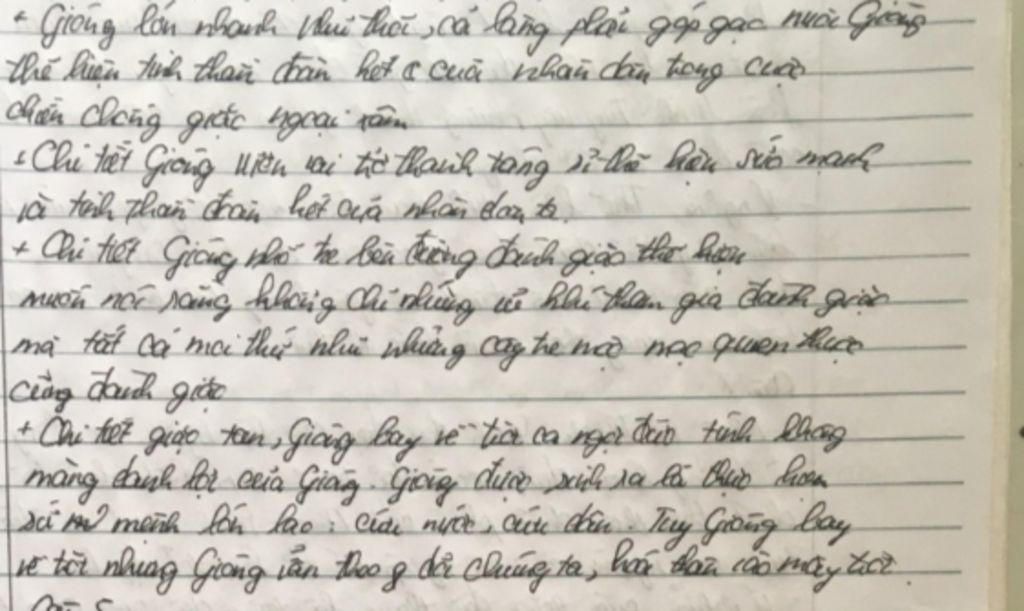 + Gióng lớn nhanh như thổi, cả làng phải góp gạo nuôi Gióng
thể hiện tinh thần đoàn kết của nhân dân trong cuộc
chiến chống giặc ngoại xâm
+ Chi tiết Gióng vươn vai trở thành tráng sĩ thể hiện sức mạnh
và tinh thần đoàn kết của nhân dân ta.
+ Chi tiết Gióng nhổ tre bên đường đánh giặc thể hiện
muốn nói rằng không chỉ những vũ khí tham gia đánh giặc
mà tất cả mọi thứ như những cây tre mộc mạc quen thuộc
cũng đánh giặc
+ Chi tiết giặc tan, Gióng bay về trời ca ngợi đức tính không
màng danh lợi của Gióng. Gióng được sinh ra là thực hiện
sứ mệnh lớn lao: cứu nước, cứu dân. Tuy Gióng bay
về trời nhưng Gióng vẫn dõi chúng ta, hoá thân vào mây trời.